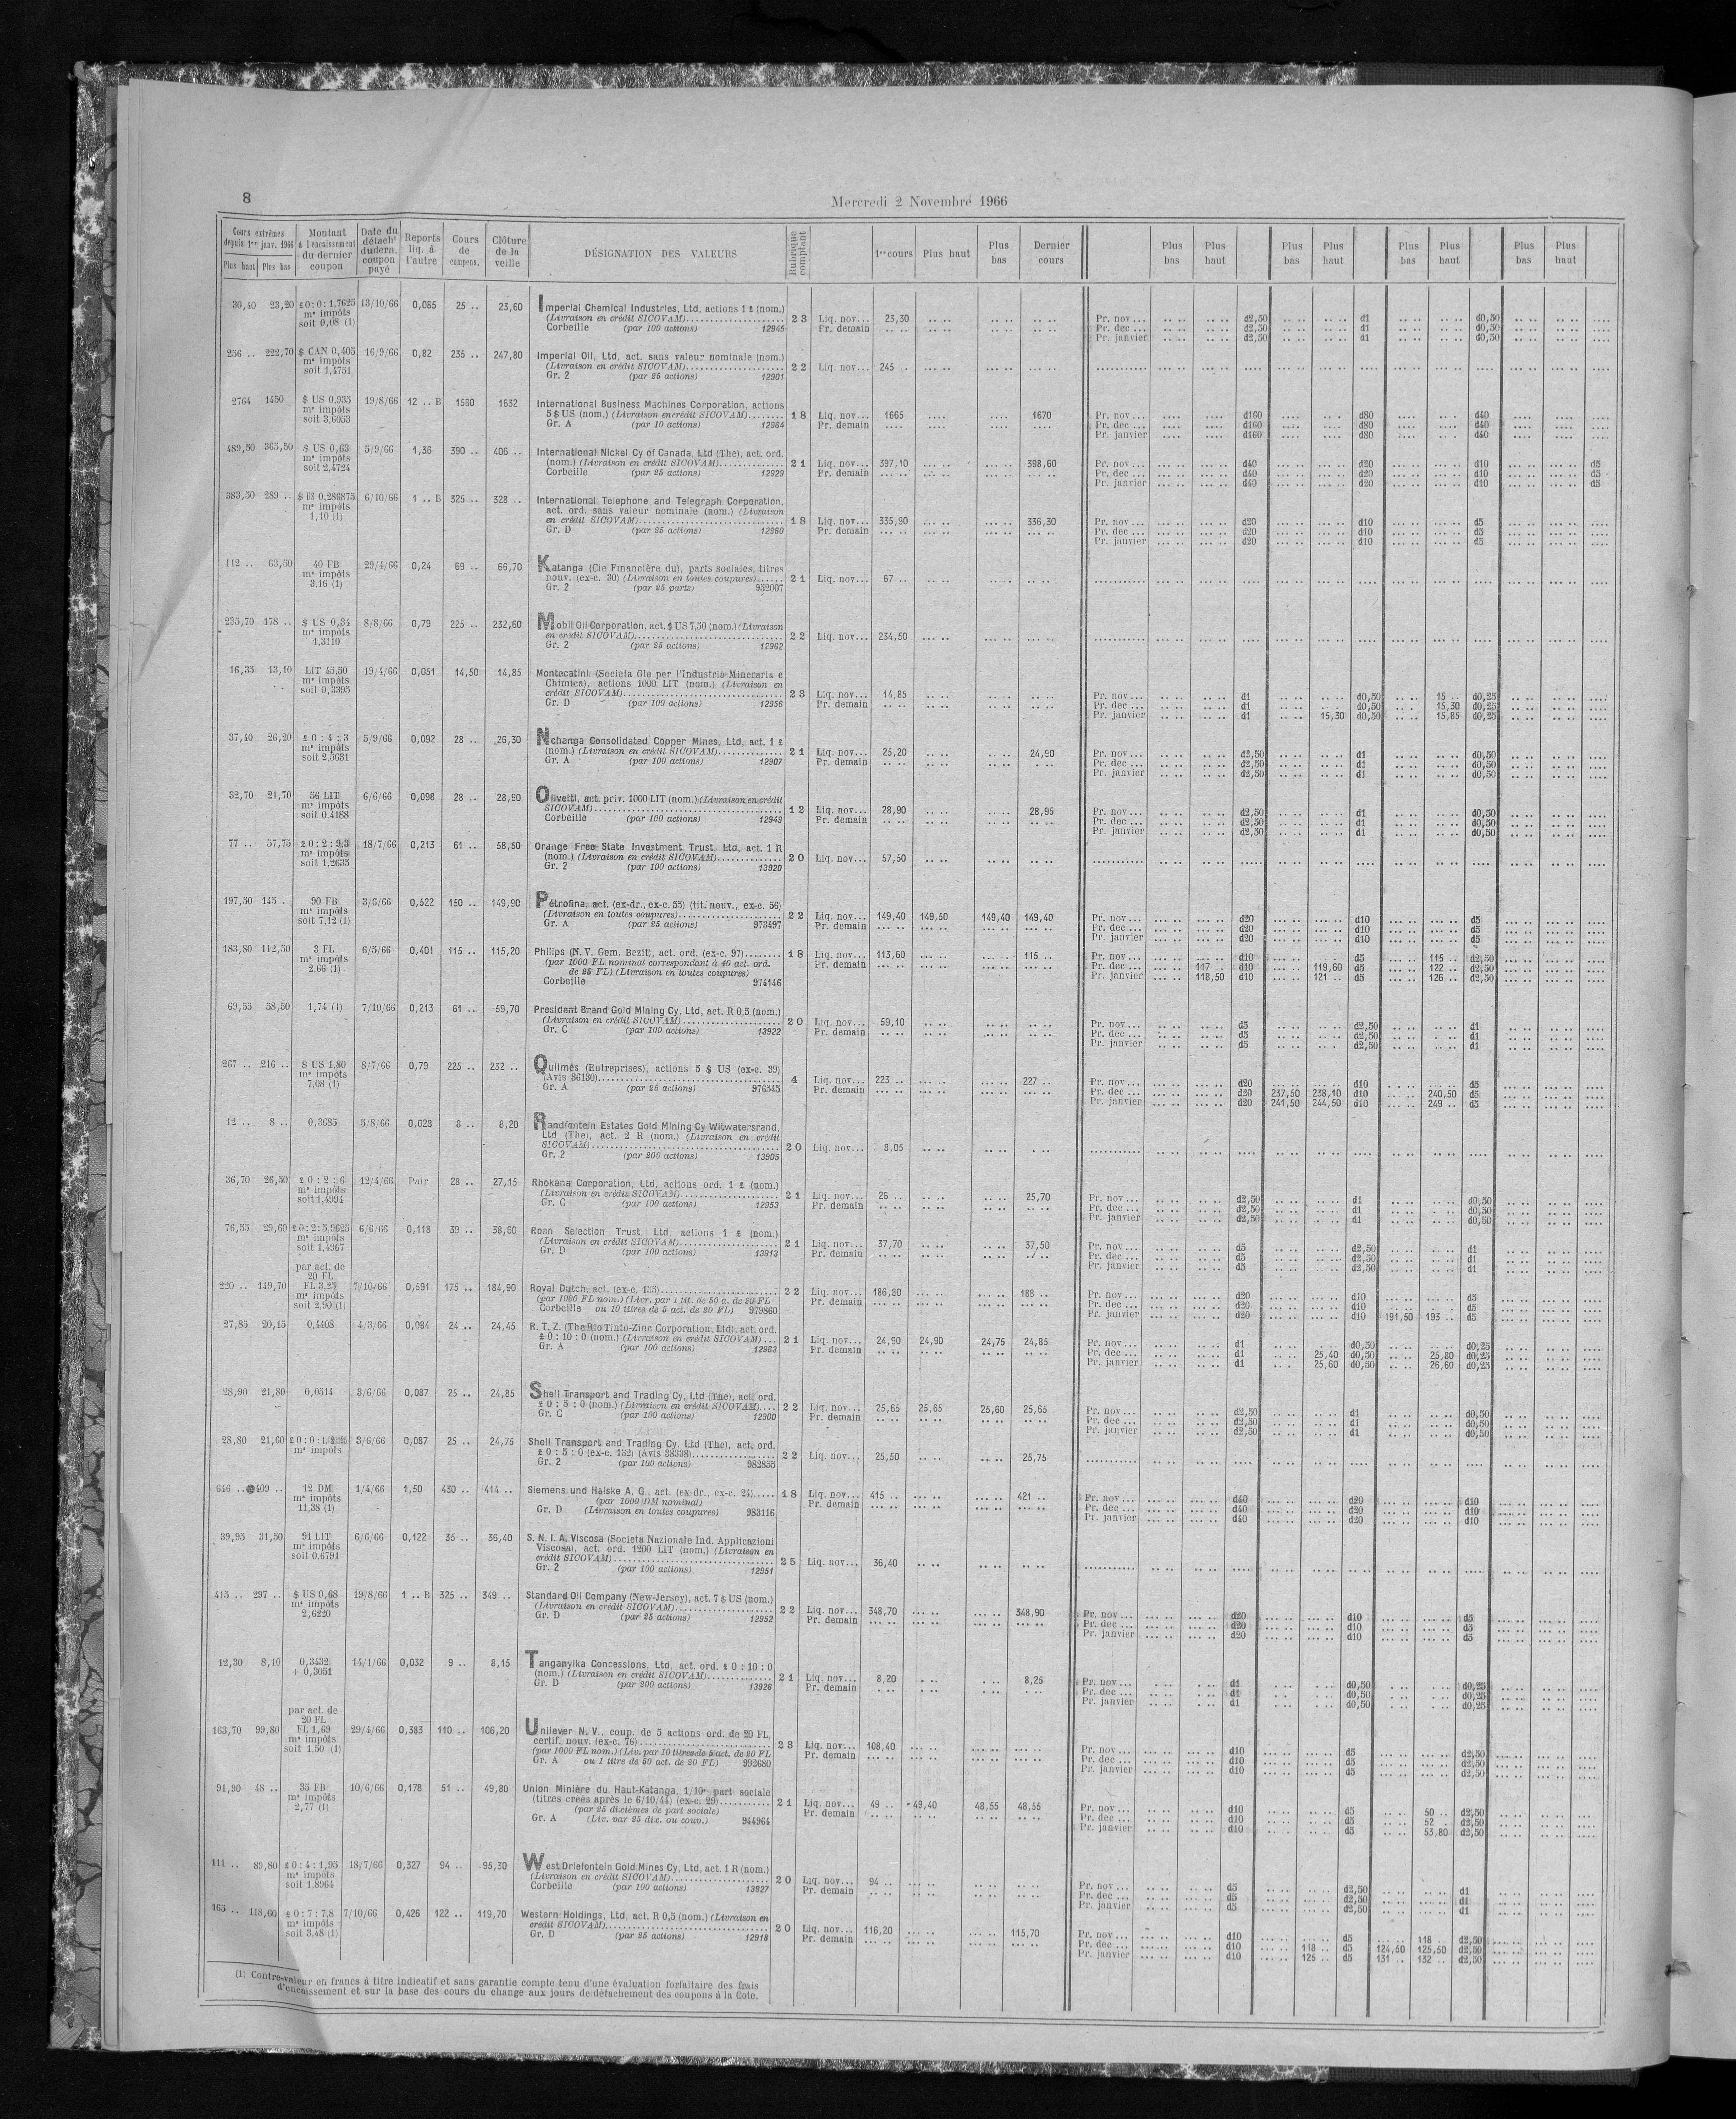 8
Mercredi 2 Novembre 1966
Cours extrêmes depuis 1er janv. 1966 Plus haut Plus bas | Montant à l'encaissement du dernier coupon | Date du détacht du dern. coupon payé | Reports liq. à l'autre | Cours de compens. | Clôture de la veille | DÉSIGNATION DES VALEURS | Rubrique comptant | 1er cours | Plus haut | Plus bas | Dernier cours | Plus bas | Plus haut | Plus bas | Plus haut | Plus bas | Plus haut | Plus bas | Plus haut
30,40 23,20 £0:0:1,7625 13/10/66 0,085 25 .. 23,60 Imperial Chemical Industries, Ltd, actions 1 £ (nom.)
ms impôts (Livraison en crédit SICOVAM) 23 Liq. nov... 23,30 Pr. nov... d2,50 d1 d0,50
soit 0,08 (1) Corbeille (par 100 actions) 12945 Pr. demain Pr. dec... d2,50 d1 d0,50
Pr. janvier d2,50 d1 d0,50
256 .. 222,70 $ CAN 0,405 16/9/66 0,82 235 .. 247,80 Imperial Oil, Ltd, act. sans valeur nominale (nom.)
ms impôts (Livraison en crédit SICOVAM) 22 Liq. nov... 245 ..
soit 1,4751 Gr. 2 (par 25 actions) 12901
2764 1450 $ US 0,935 19/8/66 12 .. B 1580 1632 International Business Machines Corporation, actions
ms impôts 5 $ US (nom.) (Livraison en crédit SICOVAM) 18 Liq. nov... 1665 1670 Pr. nov... d160 d80 d40
soit 3,6053 Gr. A (par 10 actions) 12984 Pr. demain Pr. dec... d160 d80 d40
Pr. janvier d160 d80 d40
489,50 365,50 $ US 0,63 5/9/66 1,36 390 .. 406 .. International Nickel Cy of Canada, Ltd (The), act. ord.
ms impôts (nom.) (Livraison en crédit SICOVAM) 21 Liq. nov... 397,10 398,60 Pr. nov... d40 d20 d10 d5
soit 2,4724 Corbeille (par 25 actions) 12929 Pr. demain Pr. dec... d40 d20 d10 d5
Pr. janvier d40 d20 d10 d5
383,50 289 .. $ US 0,286875 6/10/66 1 .. B 325 .. 328 .. International Telephone and Telegraph Corporation,
ms impôts act. ord. sans valeur nominale (nom.) (Livraison
1,10 (1) en crédit SICOVAM) 18 Liq. nov... 335,90 336,30 Pr. nov... d20 d10 d5
Gr. D (par 25 actions) 12980 Pr. demain Pr. dec... d20 d10 d5
Pr. janvier d20 d10 d5
112 .. 63,50 40 FB 29/4/66 0,24 69 .. 66,70 Katanga (Cie Financière du), parts sociales, titres
ms impôts nouv. (ex-c. 30) (Livraison en toutes coupures) 21 Liq. nov... 67 ..
3,16 (1) Gr. 2 (par 25 parts) 932007
235,70 178 .. $ US 0,34 8/8/66 0,79 225 .. 232,60 Mobil Oil Corporation, act. $ US 7,50 (nom.) (Livraison
ms impôts en crédit SICOVAM) 22 Liq. nov... 234,50
1,3110 Gr. 2 (par 25 actions) 12962
16,35 13,10 LIT 45,50 19/4/66 0,051 14,50 14,85 Montecatini (Societa Gle per l'Industria Mineraria e
ms impôts Chimica), actions 1000 LIT (nom.) (Livraison en
soit 0,3395 crédit SICOVAM) 23 Liq. nov... 14,85 Pr. nov... d1 d0,50 15 .. d0,25
Gr. D (par 100 actions) 12956 Pr. demain Pr. dec... d1 d0,50 15,30 d0,25
Pr. janvier d1 15,30 d0,50 15,85 d0,25
37,40 26,20 £ 0 : 4 : 3 5/9/66 0,092 28 .. 26,30 Nchanga Consolidated Copper Mines, Ltd, act. 1 £
ms impôts (nom.) (Livraison en crédit SICOVAM) 21 Liq. nov... 25,20 24,90 Pr. nov... d2,50 d1 d0,50
soit 2,5631 Gr. A (par 100 actions) 12907 Pr. demain Pr. dec... d2,50 d1 d0,50
Pr. janvier d2,50 d1 d0,50
32,70 21,70 56 LIT 6/6/66 0,098 28 .. 28,90 Olivetti, act. priv. 1000 LIT (nom.) (Livraison en crédit
ms impôts SICOVAM) 12 Liq. nov... 28,90 28,95 Pr. nov... d2,50 d1 d0,50
soit 0,4188 Corbeille (par 100 actions) 12949 Pr. demain Pr. dec... d2,50 d1 d0,50
Pr. janvier d2,50 d1 d0,50
77 .. 57,75 £ 0 : 2 : 9,3 18/7/66 0,213 61 .. 58,50 Orange Free State Investment Trust, Ltd, act. 1 R
ms impôts (nom.) (Livraison en crédit SICOVAM) 20 Liq. nov... 57,50
soit 1,2635 Gr. 2 (par 100 actions) 13920
197,50 145 .. 90 FB 3/6/66 0,522 150 .. 149,90 Pétrofina, act. (ex-dr., ex-c. 55) (tit. nouv., ex-c. 56)
ms impôts (Livraison en toutes coupures) 22 Liq. nov... 149,40 149,50 149,40 149,40 Pr. nov... d20 d10 d5
soit 7,12 (1) Gr. A (par 25 actions) 973497 Pr. demain Pr. dec... d20 d10 d5
Pr. janvier d20 d10 d5
183,80 112,50 3 FL 6/5/66 0,401 115 .. 115,20 Philips (N. V. Gem. Bezit), act. ord. (ex-c. 97) 18 Liq. nov... 113,60 115 .. Pr. nov... d10 d5 115 .. d2,50
ms impôts (par 1000 FL nominal correspondant à 40 act. ord. Pr. demain Pr. dec... 117 .. d10 119,60 d5 122 .. d2,50
2,66 (1) de 25 FL) (Livraison en toutes coupures) Pr. janvier 118,50 d10 121 .. d5 126 .. d2,50
Corbeille 974146
69,55 58,50 1,74 (1) 7/10/66 0,213 61 .. 59,70 President Brand Gold Mining Cy, Ltd, act. R 0,5 (nom.)
(Livraison en crédit SICOVAM) 20 Liq. nov... 59,10 Pr. nov... d5 d2,50 d1
Gr. C (par 100 actions) 13922 Pr. demain Pr. dec... d5 d2,50 d1
Pr. janvier d5 d2,50 d1
267 .. 216 .. $ US 1,80 8/7/66 0,79 225 .. 232 .. Quilmès (Entreprises), actions 5 $ US (ex-c. 39)
ms impôts (Avis 36130) 4 Liq. nov... 223 .. 227 .. Pr. nov... d20 d10 d5
7,08 (1) Gr. A (par 25 actions) 976345 Pr. demain Pr. dec... d20 237,50 238,10 d10 240,50 d5
Pr. janvier d20 241,50 244,50 d10 249 .. d5
12 .. 8 .. 0,3685 5/8/66 0,028 8 .. 8,20 Randfontein Estates Gold Mining Cy Witwatersrand,
Ltd (The), act. 2 R (nom.) (Livraison en crédit
SICOVAM) 20 Liq. nov... 8,05
Gr. 2 (par 200 actions) 13905
36,70 26,50 £ 0 : 2 : 6 12/4/66 Pair 28 .. 27,15 Rhokana Corporation, Ltd, actions ord. 1 £ (nom.)
ms impôts (Livraison en crédit SICOVAM) 21 Liq. nov... 26 .. 25,70 Pr. nov... d2,50 d1 d0,50
soit 1,4994 Gr. C (par 100 actions) 12953 Pr. demain Pr. dec... d2,50 d1 d0,50
Pr. janvier d2,50 d1 d0,50
76,55 29,60 £0:2:5,9625 6/6/66 0,118 39 .. 38,60 Roan Selection Trust, Ltd, actions 1 £ (nom.)
ms impôts (Livraison en crédit SICOVAM) 21 Liq. nov... 37,70 37,50 Pr. nov... d5 d2,50 d1
soit 1,4967 Gr. D (par 100 actions) 13913 Pr. demain Pr. dec... d5 d2,50 d1
Pr. janvier d5 d2,50 d1
par act. de
20 FL
220 .. 149,70 FL 3,25 7/10/66 0,591 175 .. 184,90 Royal Dutch, act. (ex-c. 155) 22 Liq. nov... 186,80 188 .. Pr. nov... d20 d10 d5
ms impôts (par 1000 FL nom.) (Livr. par 1 tit. de 50 a. de 20 FL Pr. demain Pr. dec... d20 d10 d5
soit 2,90 (1) Corbeille ou 10 titres de 5 act. de 20 FL) 979860 Pr. janvier d20 d10 191,50 193 .. d5
27,85 20,15 0,4408 4/3/66 0,084 24 .. 24,45 R. T. Z. (The Rio Tinto-Zinc Corporation, Ltd), act. ord.
£ 0 : 10 : 0 (nom.) (Livraison en crédit SICOVAM) 21 Liq. nov... 24,90 24,90 24,75 24,85 Pr. nov... d1 d0,50 d0,25
Gr. A (par 100 actions) 12983 Pr. demain Pr. dec... d1 25,40 d0,50 25,80 d0,25
Pr. janvier d1 25,60 d0,50 26,60 d0,25
28,90 21,80 0,0514 3/6/66 0,087 25 .. 24,85 Shell Transport and Trading Cy, Ltd (The), act. ord.
£ 0 : 5 : 0 (nom.) (Livraison en crédit SICOVAM) 22 Liq. nov... 25,65 25,65 25,60 25,65 Pr. nov... d2,50 d1 d0,50
Gr. C (par 100 actions) 12900 Pr. demain Pr. dec... d2,50 d1 d0,50
Pr. janvier d2,50 d1 d0,50
28,80 21,60 3/6/66 0,087 25 .. 24,75 Shell Transport and Trading Cy, Ltd (The), act. ord.
ms impôts £ 0 : 5 : 0 (ex-c. 132) (Avis 38338) 22 Liq. nov... 25,50 25,75
Gr. 2 (par 100 actions) 982855
646 .. 409 .. 12 DM 1/4/66 1,50 430 .. 414 .. Siemens und Halske A. G., act. (ex-dr., ex-c. 24) 18 Liq. nov... 415 .. 421 .. Pr. nov... d40 d20 d10
ms impôts (par 1000 DM nominal) Pr. demain Pr. dec... d40 d20 d10
11,38 (1) Gr. D (Livraison en toutes coupures) 983116 Pr. janvier d40 d20 d10
39,95 31,50 91 LIT 6/6/66 0,122 35 .. 36,40 S. N. I. A. Viscosa (Societa Nazionale Ind. Applicazioni
ms impôts Viscosa), act. ord. 1200 LIT (nom.) (Livraison en
soit 0,6791 crédit SICOVAM) 25 Liq. nov... 36,40
Gr. 2 (par 100 actions) 12951
415 .. 297 .. $ US 0,68 19/8/66 1 .. B 325 .. 349 .. Standard Oil Company (New-Jersey), act. 7 $ US (nom.)
ms impôts (Livraison en crédit SICOVAM) 22 Liq. nov... 348,70 348,90 Pr. nov... d20 d10 d5
2,6220 Gr. D (par 25 actions) 12952 Pr. demain Pr. dec... d20 d10 d5
Pr. janvier d20 d10 d5
12,30 8,10 0,3432 14/1/66 0,032 9 .. 8,15 Tanganyika Concessions, Ltd, act. ord. £ 0 : 10 : 0
+ 0,3051 (nom.) (Livraison en crédit SICOVAM) 21 Liq. nov... 8,20 8,25 Pr. nov... d1 d0,50 d0,25
Gr. D (par 200 actions) 13926 Pr. demain Pr. dec... d1 d0,50 d0,25
Pr. janvier d1 d0,50 d0,25
par act. de
20 FL
163,70 99,80 FL 1,69 29/4/66 0,383 110 .. 106,20 Unilever N. V., coup. de 5 actions ord. de 20 FL,
ms impôts certif. nouv. (ex-c. 76) 23 Liq. nov... 108,40 Pr. nov... d10 d5 d2,50
soit 1,50 (1) (par 1000 FL nom.) (Liv. par 10 titres de 5 act. de 20 FL Pr. demain Pr. dec... d10 d5 d2,50
Gr. A ou 1 titre de 50 act. de 20 FL) 992680 Pr. janvier d10 d5 d2,50
91,90 48 .. 35 FB 10/6/66 0,178 51 .. 49,80 Union Minière du Haut-Katanga, 1/10e part sociale
ms impôts (titres créés après le 6/10/44) (ex-c. 29) 21 Liq. nov... 49 .. 49,40 48,55 48,55 Pr. nov... d10 d5 50 .. d2,50
2,77 (1) (par 25 dixièmes de part sociale) Pr. demain Pr. dec... d10 d5 52 .. d2,50
Gr. A (Liv. par 25 dix. ou coup.) 944964 Pr. janvier d10 d5 53,80 d2,50
111 .. 89,80 £ 0 : 4 : 1,95 18/7/66 0,327 94 .. 95,30 West Driefontein Gold Mines Cy, Ltd, act. 1 R (nom.)
ms impôts (Livraison en crédit SICOVAM) 20 Liq. nov... 94 .. Pr. nov... d5 d2,50 d1
soit 1,8964 Corbeille (par 100 actions) 13927 Pr. demain Pr. dec... d5 d2,50 d1
Pr. janvier d5 d2,50 d1
165 .. 118,60 £ 0 : 7 : 7,8 7/10/66 0,426 122 .. 119,70 Western Holdings, Ltd, act. R 0,5 (nom.) (Livraison en
ms impôts crédit SICOVAM) 20 Liq. nov... 116,20 115,70 Pr. nov... d10 d5 118 .. d2,50
soit 3,48 (1) Gr. D (par 25 actions) 12918 Pr. demain Pr. dec... d10 118 .. d5 124,60 125,50 d2,50
Pr. janvier d10 125 .. d5 131 .. 132 .. d2,50
(1) Contre-valeur en francs à titre indicatif et sans garantie compte tenu d'une évaluation forfaitaire des frais
d'encaissement et sur la base des cours du change aux jours de détachement des coupons à la Cote.